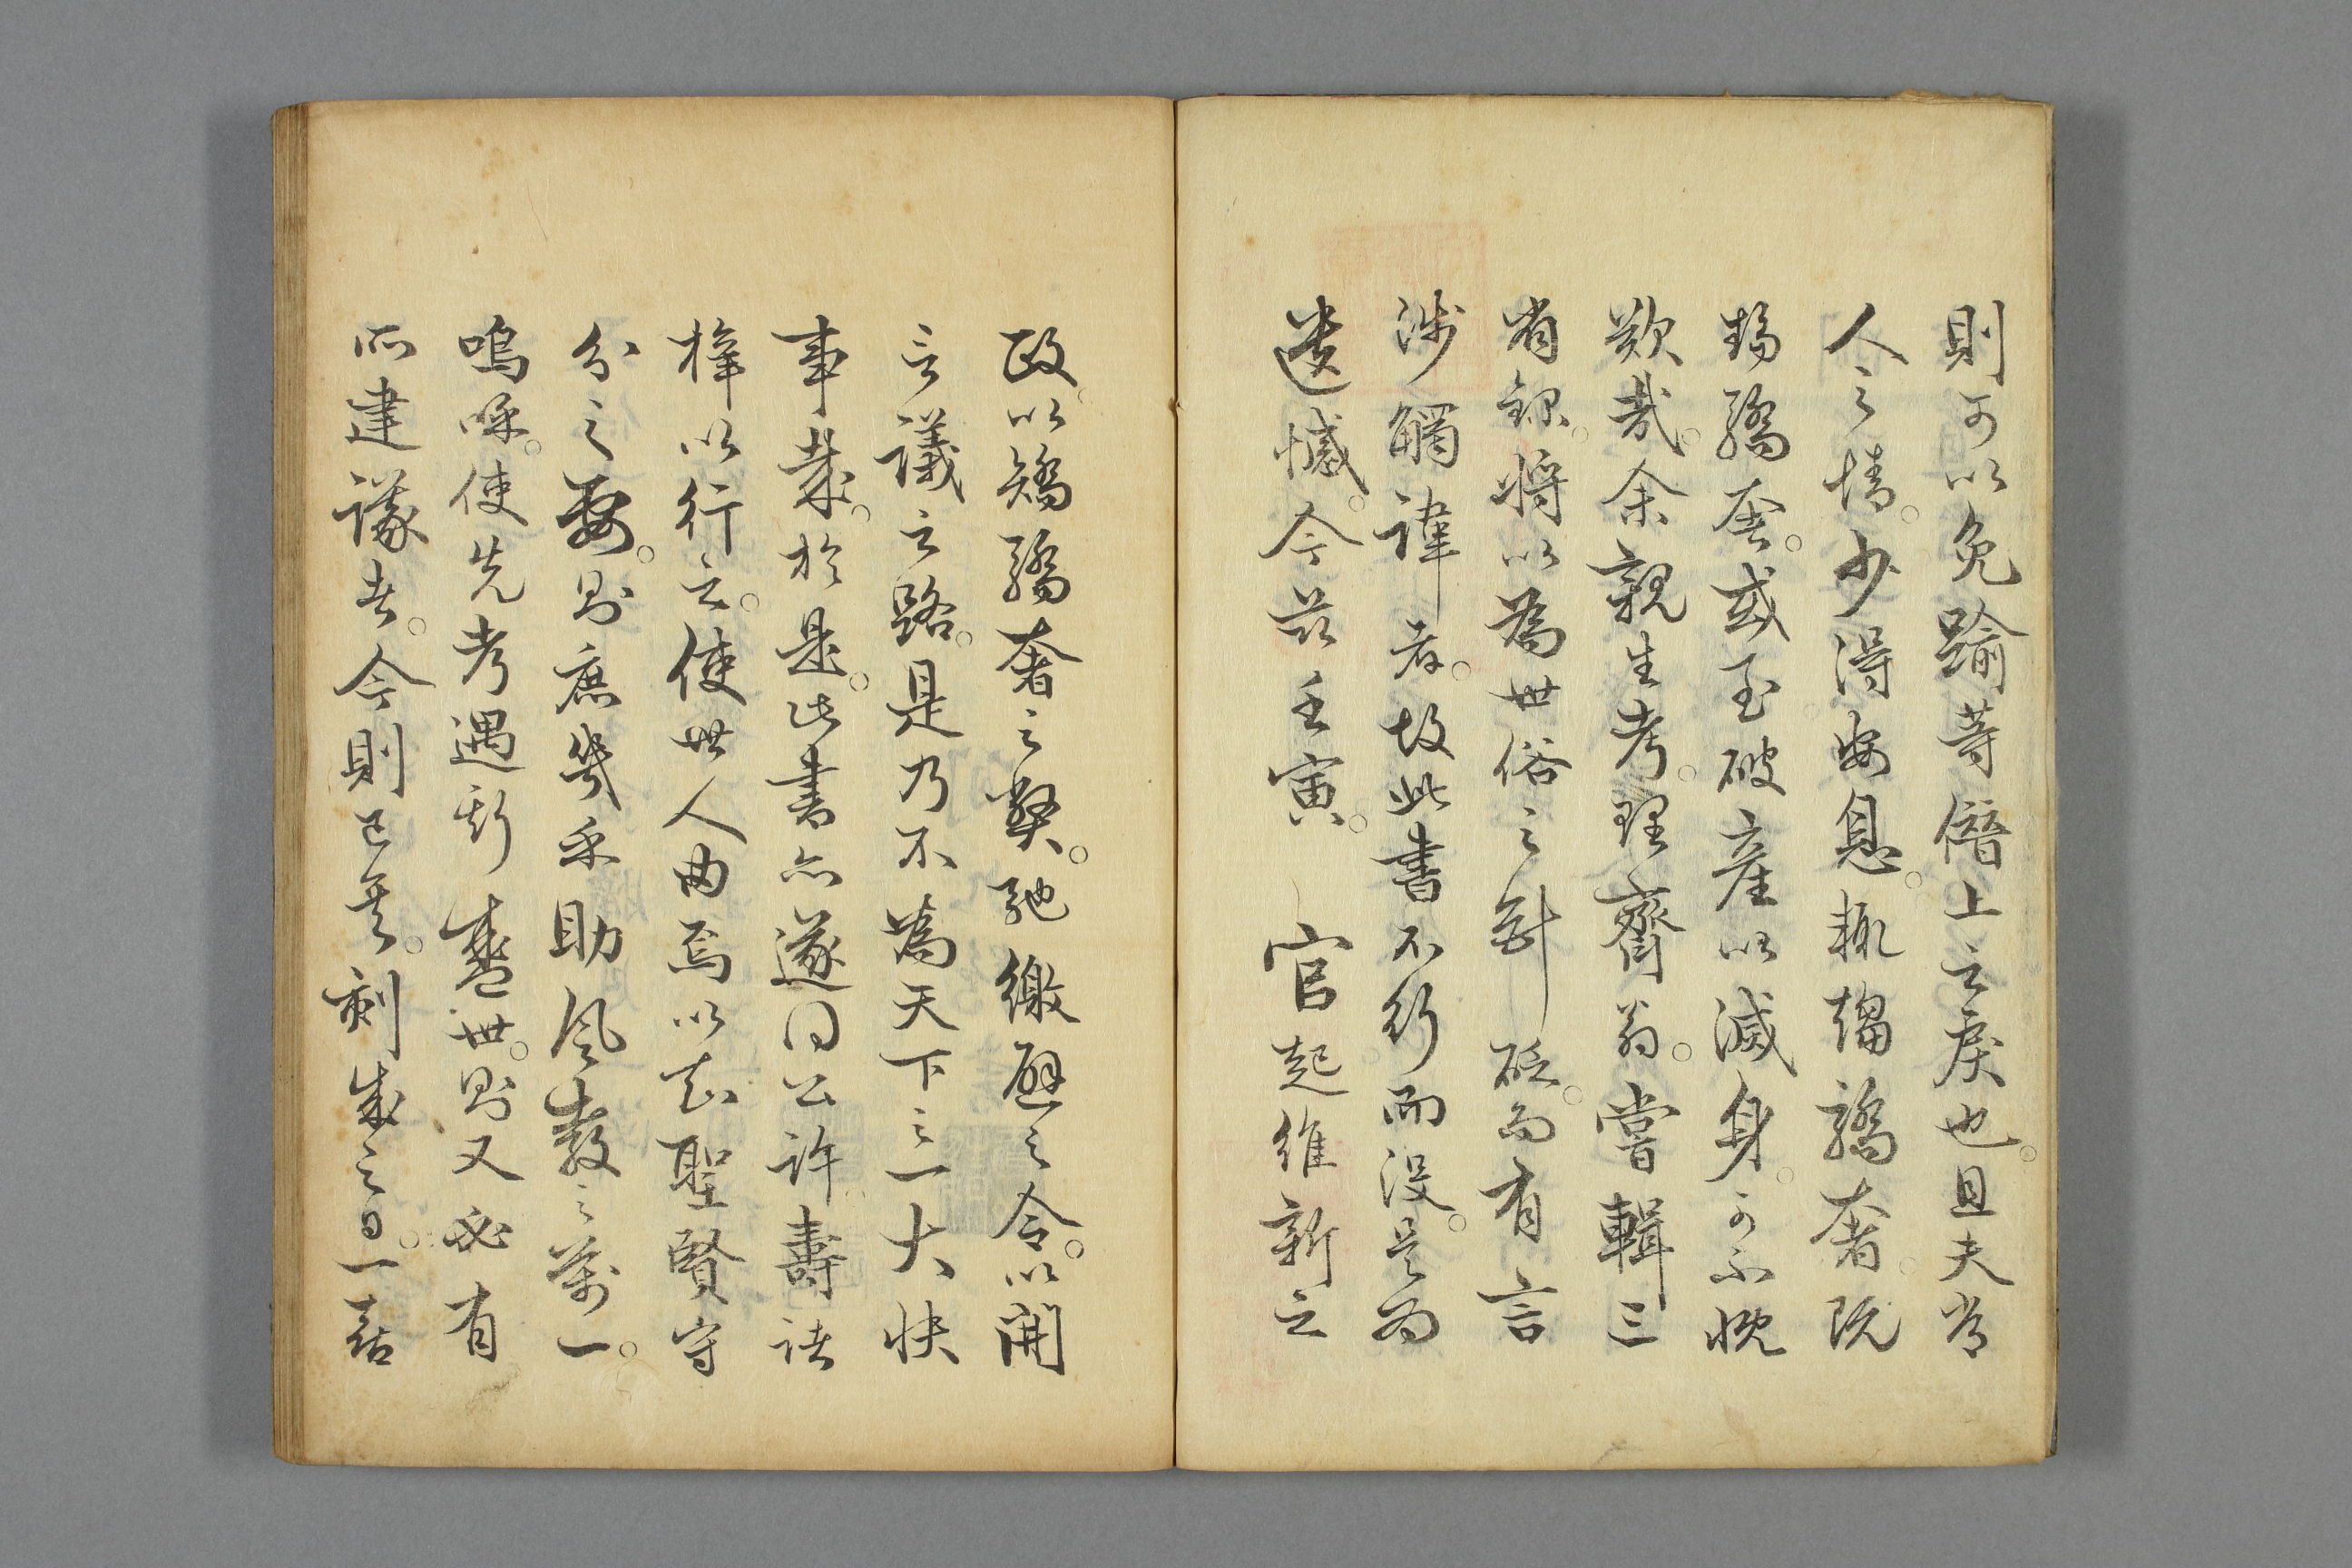 則可以免踰等僭上之戾也。且夫常
人之情。少得安息。輒趨驕奢。既
趨驕奢。或至破產以滅身。可不慨
歎哉。余親生考。理齋翁。嘗輯三
省錄。將以為世俗之針砭。而有言
涉觸諱者。故此書不行而沒。是為
遺憾。今茲壬寅。官起維新之
政以矯驕奢之弊。弛徼辟之令。以開
言議之路。是乃不為天下之一大快
事哉。於是。此書亦遂得公許。壽諸
梓以行之。使世人由焉以知聖賢守
分之要。則庶幾乎助風教之萬一。
嗚呼。使先考遇斯盛世。則又必有
所建議者。今則已矣。刻成之日。一喜